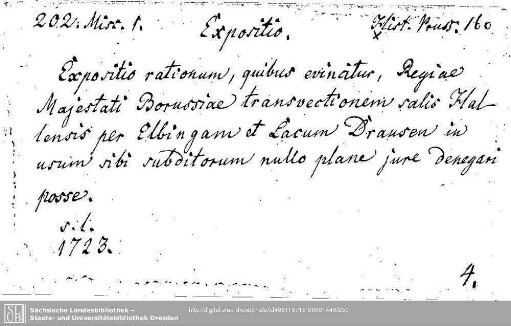 202. Misc. 1. Expositio. Hist. Pruss. 160
Expositio rationum, quibus evincitur, Regiae
Majestati Borussiae transvectionem salis Hal-
lensis per Elbingam et Lacum Drausen in
usum sibi subditorum nullo plane jure denegari
posse.
s. l.
1723.
4.
Sächsische Landesbibliothek –
Staats- und Universitätsbibliothek Dresden